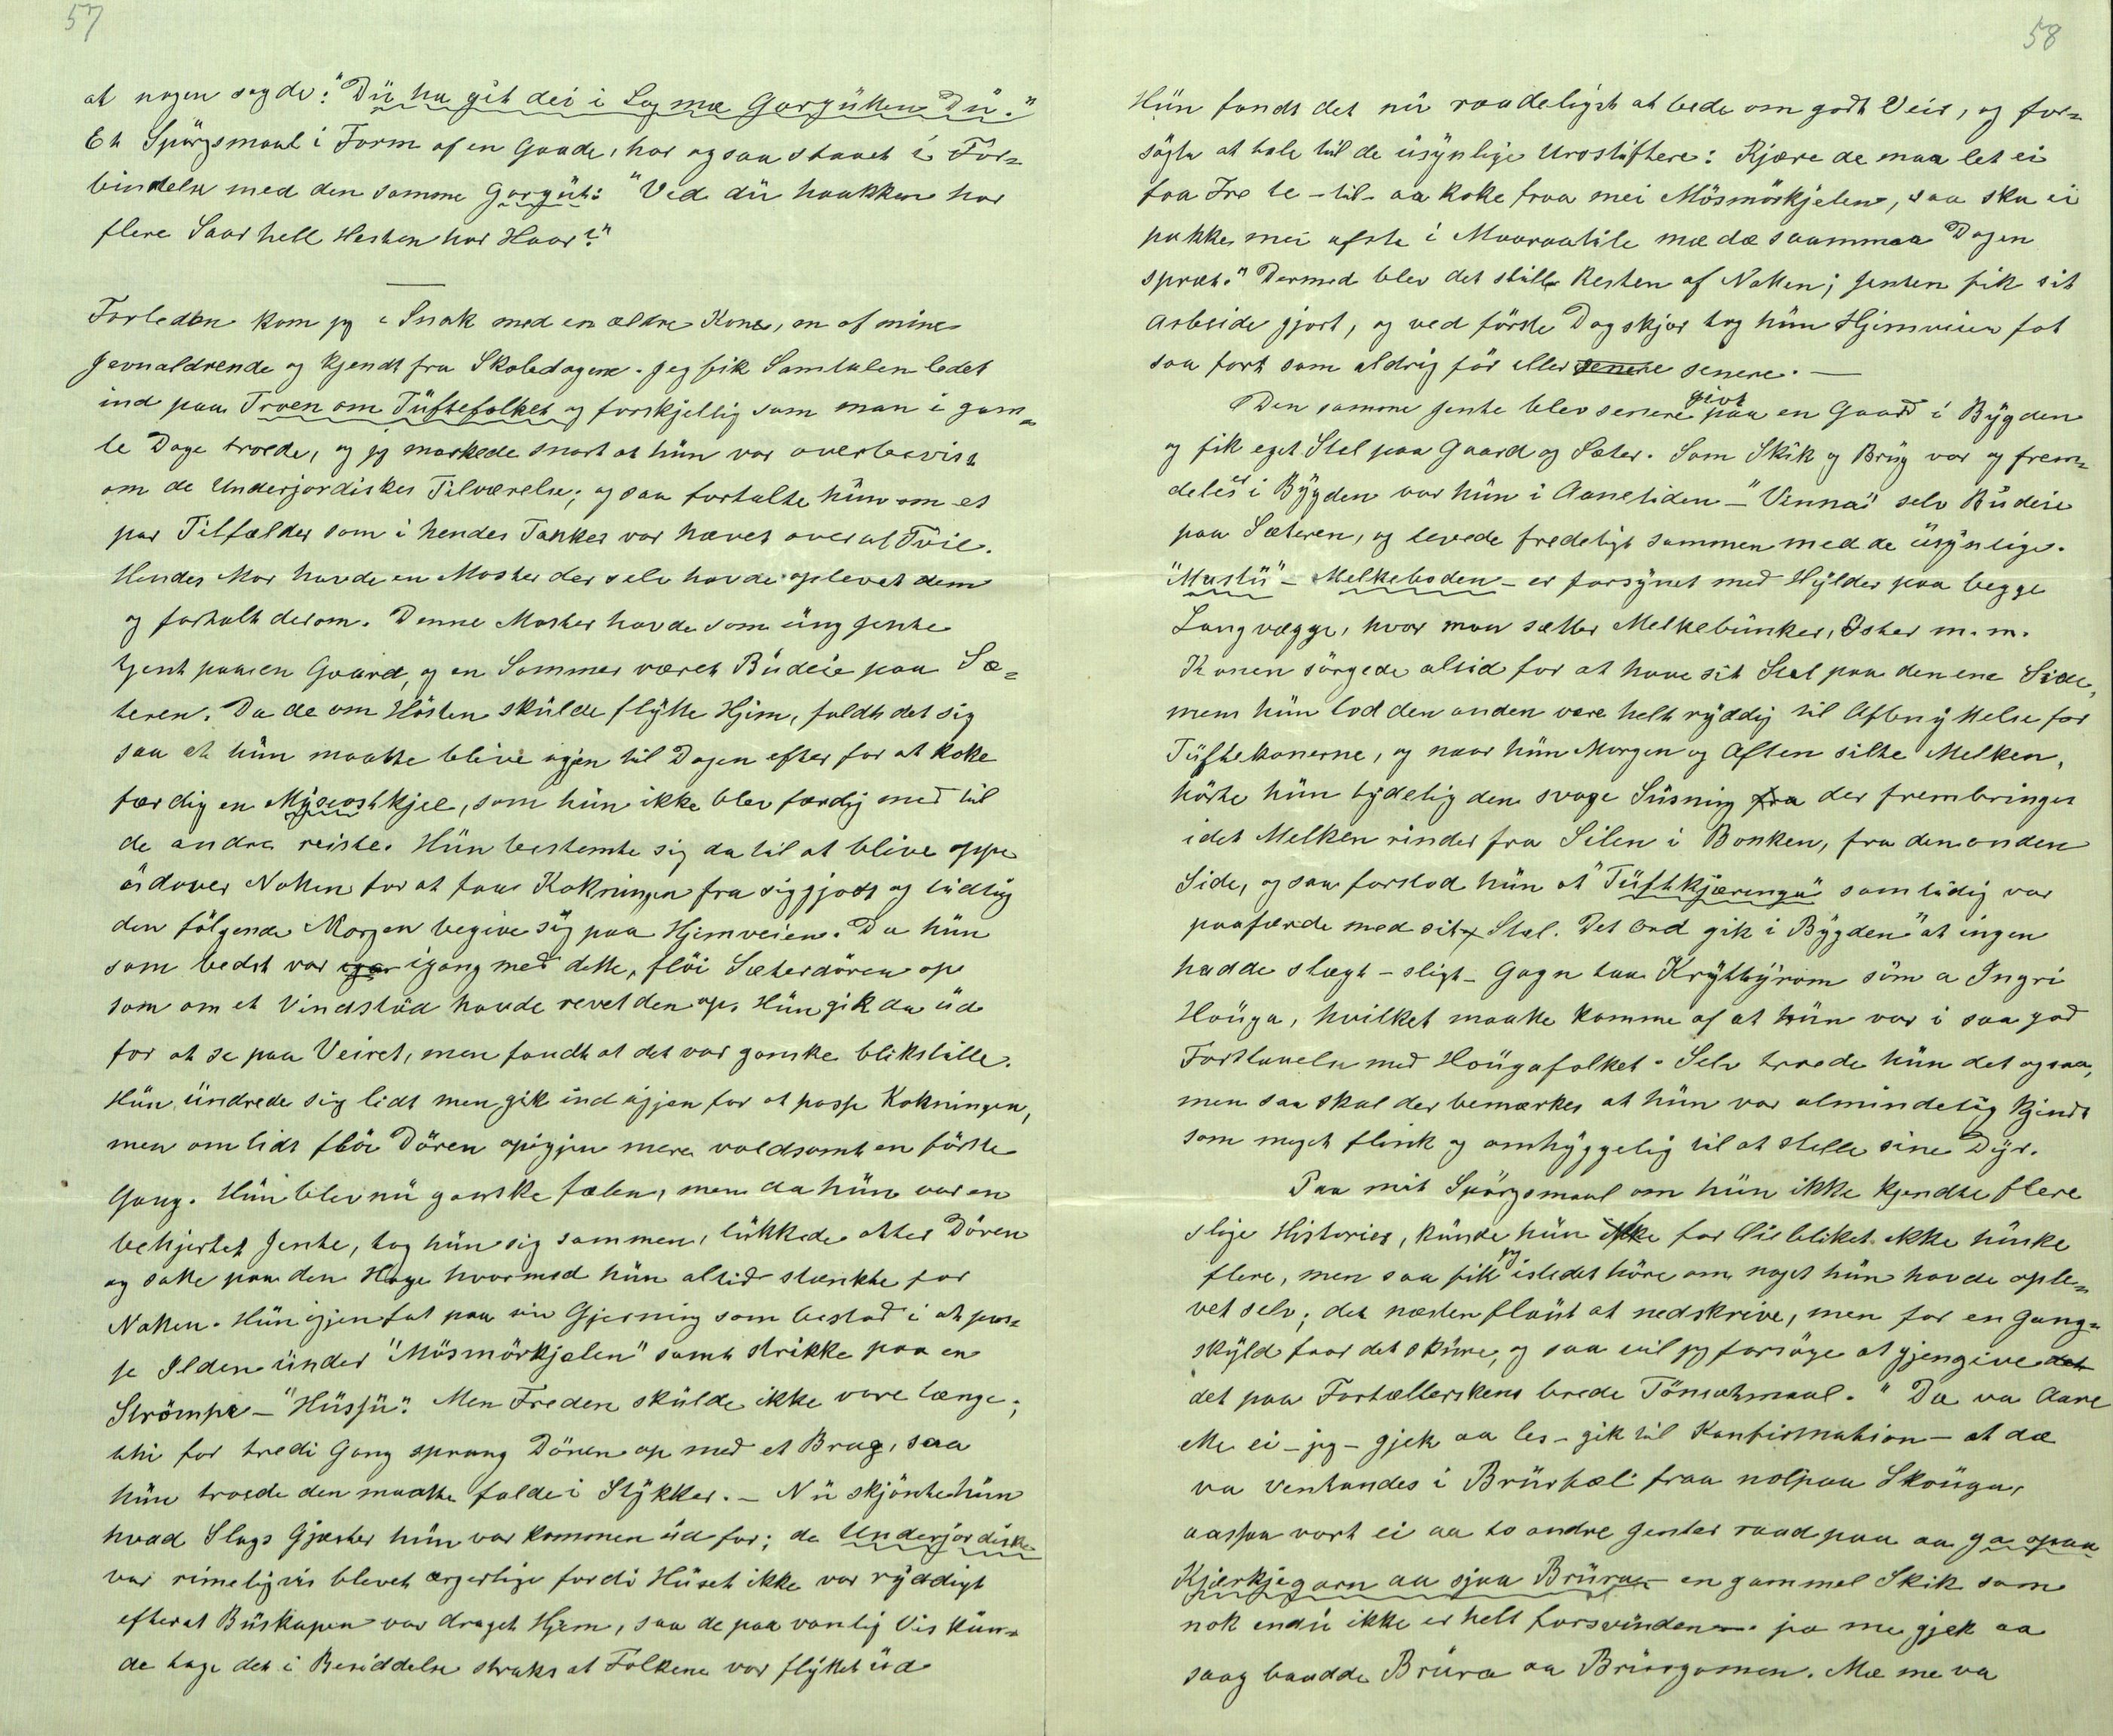 57
at nogen sagde: "Dü ha git dei i Lag mæ Gorgüten Dü."
Et Spörgsmaal i Form af en Gaade, har ogsaa staaet i For-
bindelse med den samme Gorgüt: "Ved dü haakken har
flere Saar hell Hesten har Haar?"
Forleden kom jeg i Snak med en ældre Kone, en af mine
Jevnaldrende og kjendt fra Skoledagene. Jeg fik Samtalen ledet
ind paa Troen om Tüftefolket og forskjellig som man i gam-
le Dage troede, og jeg mærkede snart at hün var overbevist
om de Underjordiskes Tilværelse; og saa fortalte hün om et
par Tilfælder som i hendes Tanker var hævet over al Tvil.
Hendes Mor havde en Moster der selv havde oplevet dem
og fortalt derom. Denne Moster havde som üng Jente
tjent paa en Gaard, og en Sommer været Büdeie paa Sæ-
teren. Da de om Hösten skülde flytte Hjem, faldt det sig
saa at hün maatte blive igjen til Dagen efter for at koke
færdig en Myseostkjel, som hün ikke blev færdig med til
de andre reiste. Hün bestemte sig da til at blive oppe
üdover Natten for at faa Kokningen fra sig gjort og tidlig
den fölgende Morgen begive sig paa Hjemveien. Da hün
som bedst var igang med dette, flöi Sæterdören op
som om et Vindstöd havde revet den op. Hün gik da üd
for at se paa Veiret, men fandt at det var ganske blikstille.
Hün ündrede sig lidt men gik ind igjen for at passe Kokningen,
men om lidt flöi Dören op igjen mere voldsomt en förste
Gang. Hün blev nü ganske fælen, men da hün var en
behjertet Jente, tog hün sig sammen, lükkede atter Dören
og satte paa den Hage hvormed hün altid stænkte for
Natten. Hün igjen fat paa sin Gjerning som bestod i at pas-
se Ilden ünder "Mösmörkjelen" samt strikke paa en
Strömpe - "Hüssü". Men Freden skülde ikke vare længe;
thi for tredi Gang sprang Dören op med et Brag, saa
hün troede den maatte falde i Stykker. - Nü skjönte hün
hvad Slags Gjæster hün var kommen üd for; de Underjordiske
var rimeligvis blevet ærgerlige fordi Hüset ikke var ryddigt
efterat Büskapen var draget Hjem, saa de paa vanlig Vis kün-
de tage det i Besiddelse straks at Folkene var flyttet üd
58
Hün fandt det nü raadeligst at bede om godt Veir, og for-
sögte at tale til de üsynlige Urostiftere: Kjære de maa let ei
faa Fre te - til - aa koke fraa mei Mösmörkjelen, saa ska ei
pakke mei afste i Maaraatile mæ dæ saammaa Dagen
spræt." Dermed blev det stille Resten af Natten; Jenten fik sit
Arbeide gjort, og ved förste Dagskjær tog hün Hjemveien fat
saa fort som aldrig för eller senere senere. -
Den samme Jente blev senere givt paa en Gaard i Bygden
og fik eget Stel paa Gaard og Sæter. Som Skik og Brüg var og frem-
deles er i Bygden var hün i Aanetiden - "Vinna" selv Büdeie
paa Sæteren, og levede fredeligt sammen med de üsynlige.
"Mastü" - Melkeboden - er forsynet med Hylder paa begge
Langvægge, hvor man sætter Melkebünker, Oster m.m.
Konen sörgede altid for at have sit Stel paa den ene Side,
mens hün lod den anden være helt ryddig til Afbenyttelse for
Tüftekonerne, og naar hün Morgen og Aften silte Melken,
hörte hün tydelig den svage Süsning fra der frembringes
idet Melken rinder fra Silen i Bonken, fra den anden
Side, og saa forstod hün at "Tüftkjæringa" samtidig var
paafærde med sit Stel. Det Ord gik i Bygden "at ingen
hadde slægt - sligt - Gagn taa Kryttyrom söm a Ingri
Haüga, hvilket maatte komme af at hün var i saa god
Forstaaelse med Haügafolket. Selv troede hün det ogsaa,
men saa skal der bemærkes at hün var almindelig kjendt
som meget flink og omhyggelig til at stelle sine Dyr.
Paa mit Spörgsmaal om hün ikke kjendte flere
slige Historier, künde hün ikke for Öiebliket ikke hüske
flere, men saa fik jeg istedet höre om noget hün havde ople-
vet selv; det næsten flaüt at nedskrive, men for en Gang-
skyld faar det sküre, og saa vil jeg forsöge at gjengive det
det paa Fortællerskens brede Tönsetmaal. " Dæ va Aare
ette ei - jeg - gjek aa les - gik til Konfirmation - at dæ
va ventandes i Brürfæl fraa nolpaa Skoüga,
aassaa vart ei aa to andre Jenter raad paa aa ga opaa
Kjærkjegarn aa sjaa Brüra - en gammel Skik som
nok endü ikke er helt forsvünden - ja me gjek aa
saag baadde Brüra aa Brürgomen. Mæ me va